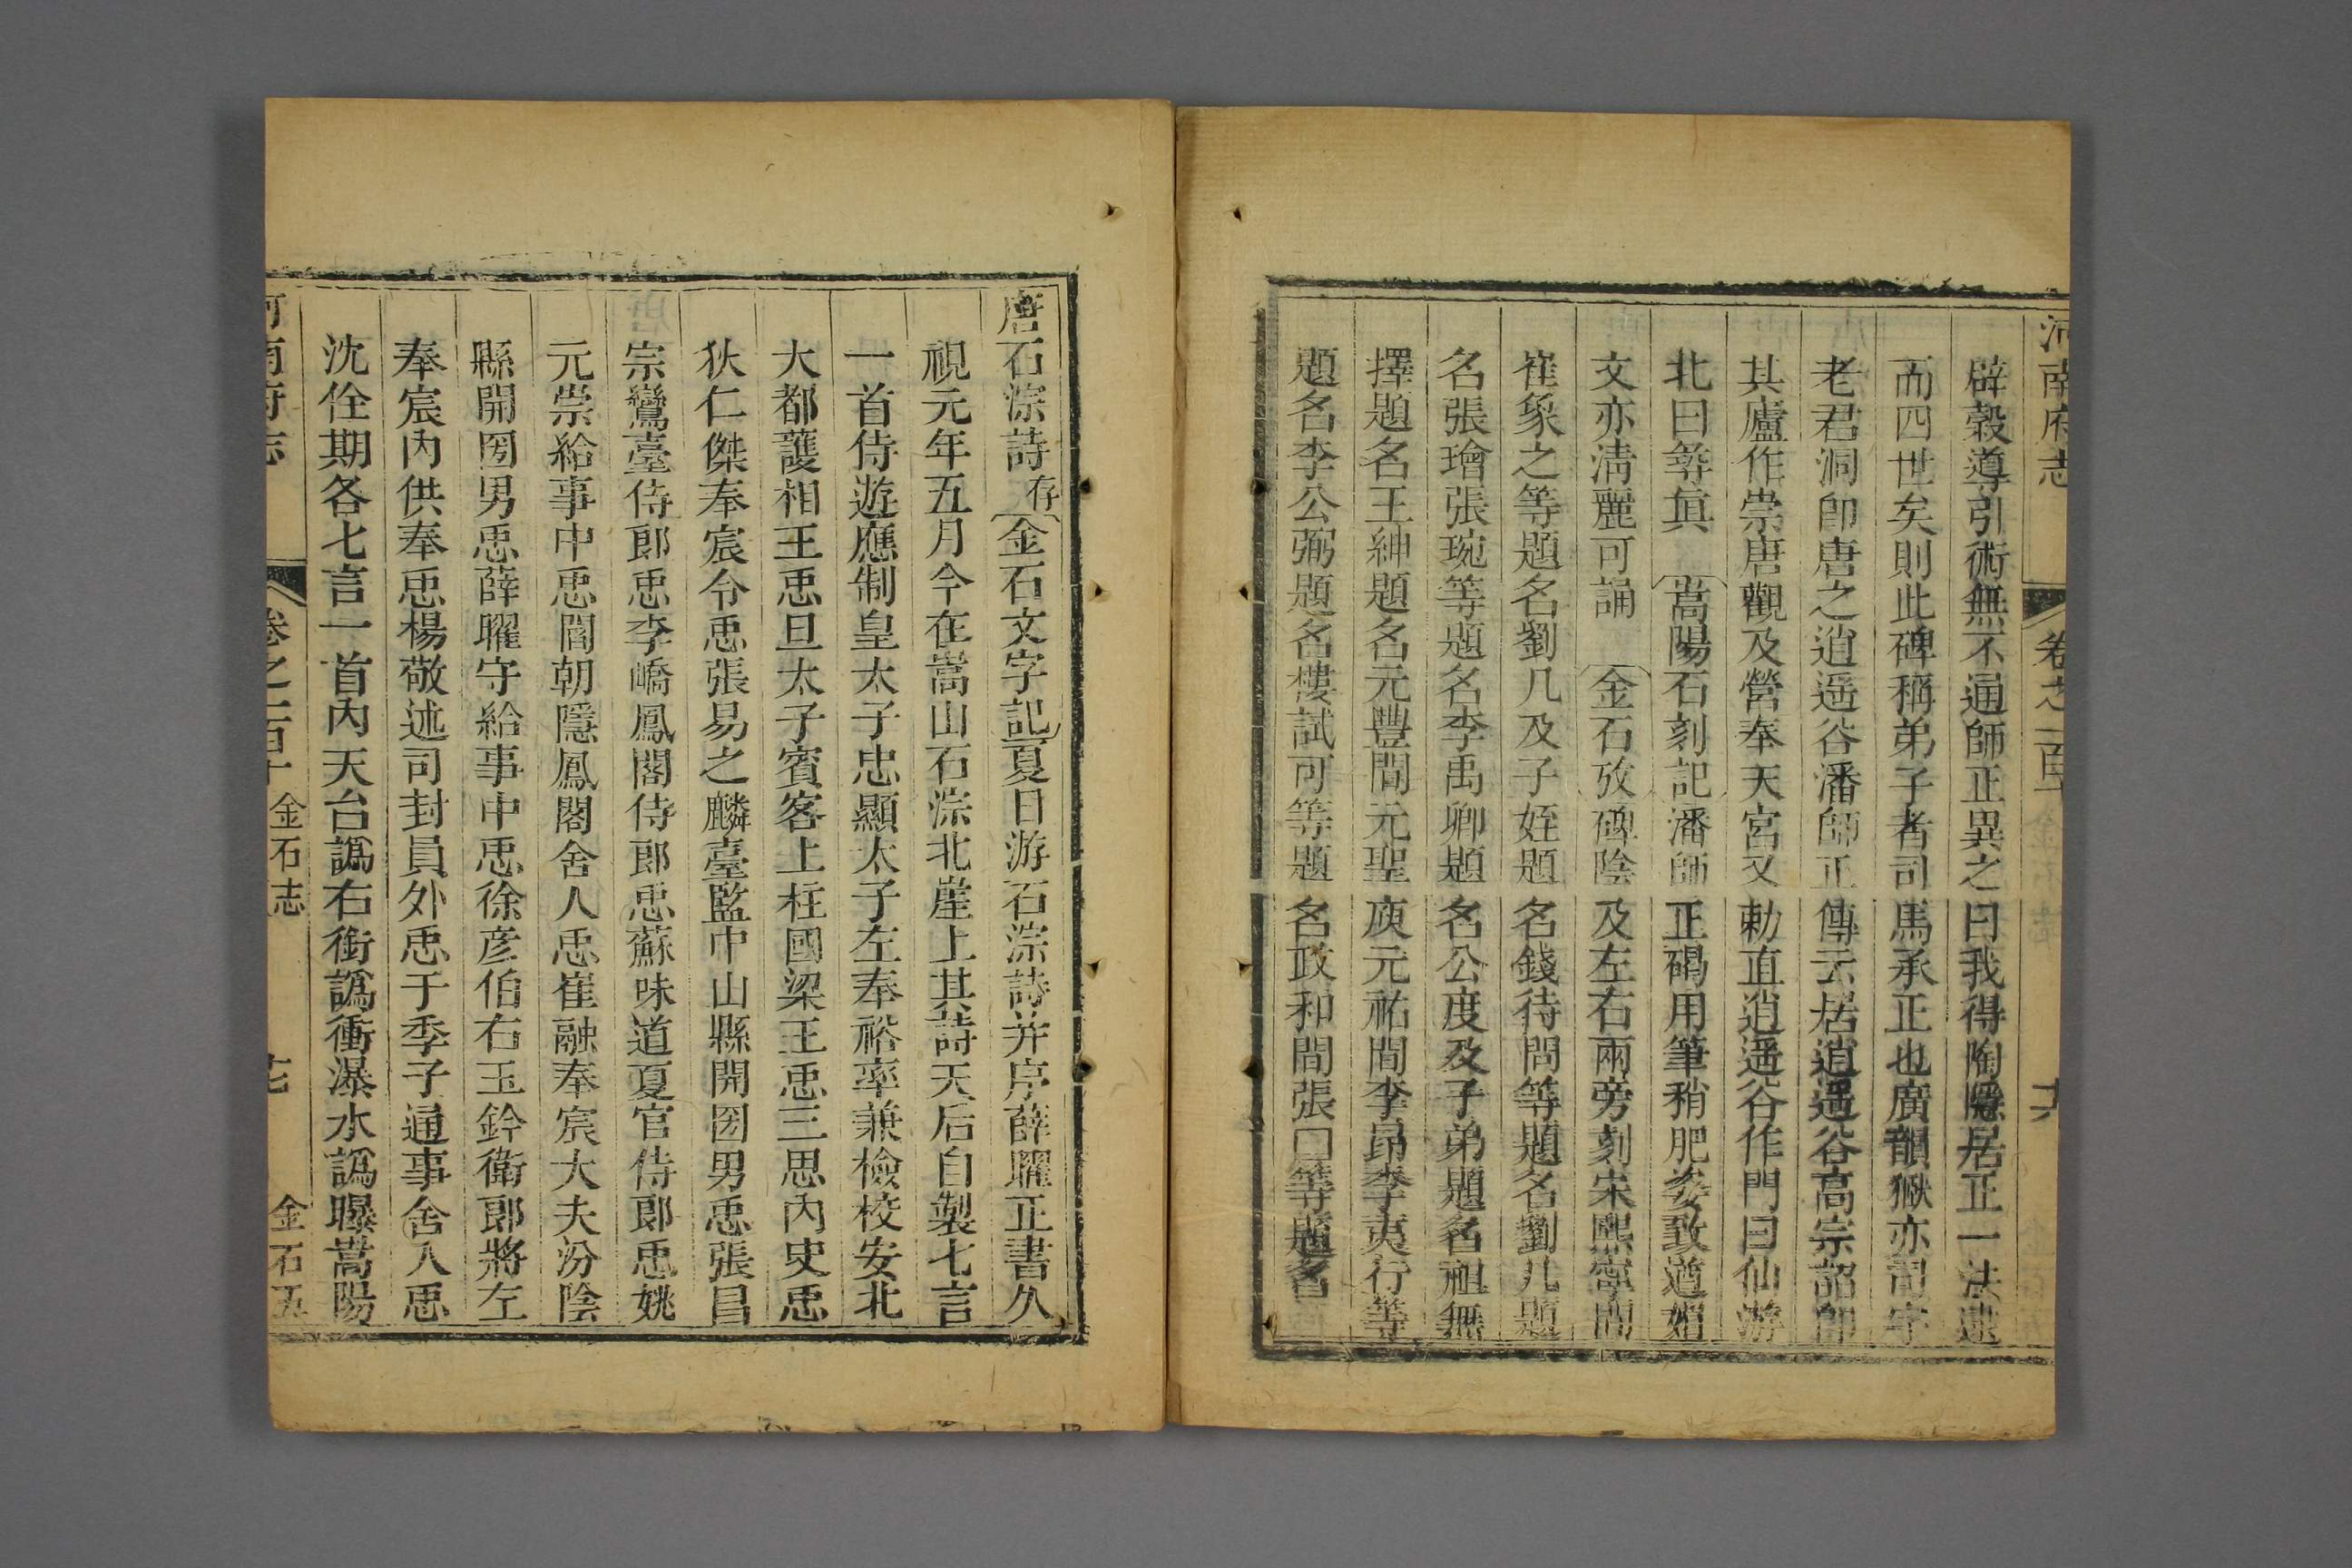 河南府志 卷之一百十 六
辟穀導引術無不通師正異之曰我得陶隱居正一法逮
而四世矣則此碑稱弟子者司馬承正也廣韻嶽亦司字
老君洞卽唐之逍遥谷潘師正傳云居逍遥谷高宗詔卽
其廬作崇唐觀及營奉天宮又勅直逍遥谷作門曰仙游
北曰尋眞 嵩陽石刻記潘師正碣用筆稍肥姿致遒媚
文亦淸麗可誦 金石攷碑陰及左右兩旁刻宋熙寧間
崔象之等題名劉几及子姪題名錢待問等題名劉几題
名張璯張琬等題名李禹卿題名公度及子弟題名祖無
擇題名王紳題名元豐間元聖庾元祐間李昂李夷行等
題名李公弼題名樓試可等題名政和間張口等題名
唐石淙詩 存 金石文字記夏日游石淙詩幷序薛曜正書久
視元年五月今在嵩山石淙北崖上其詩天后自製七言
一首侍遊應制皇太子忠顯太子左奉裕率兼檢校安北
大都護相王𢘑旦太子賓客上柱國梁王𢘑三思內史𢘑
狄仁傑奉宸令𢘑張易之麟臺監中山縣開圀男𢘑張昌
宗鸞臺侍郞𢘑李嶠鳳閣侍郞𢘑蘇味道夏官侍郞𢘑姚
元崇給事中𢘑閻朝隱鳳閣舍人𢘑崔融奉宸大夫汾陰
縣開圀男𢘑薛曜守給事中𢘑徐彥伯右玉鈐衛郞將左
奉宸內供奉𢘑楊敬述司封員外𢘑于季子通事舍人𢘑
沈佺期各七言一首內天台譌右銜譌衝瀑水譌曝嵩陽
河南府志 卷之一百十 金石志 七 金石五